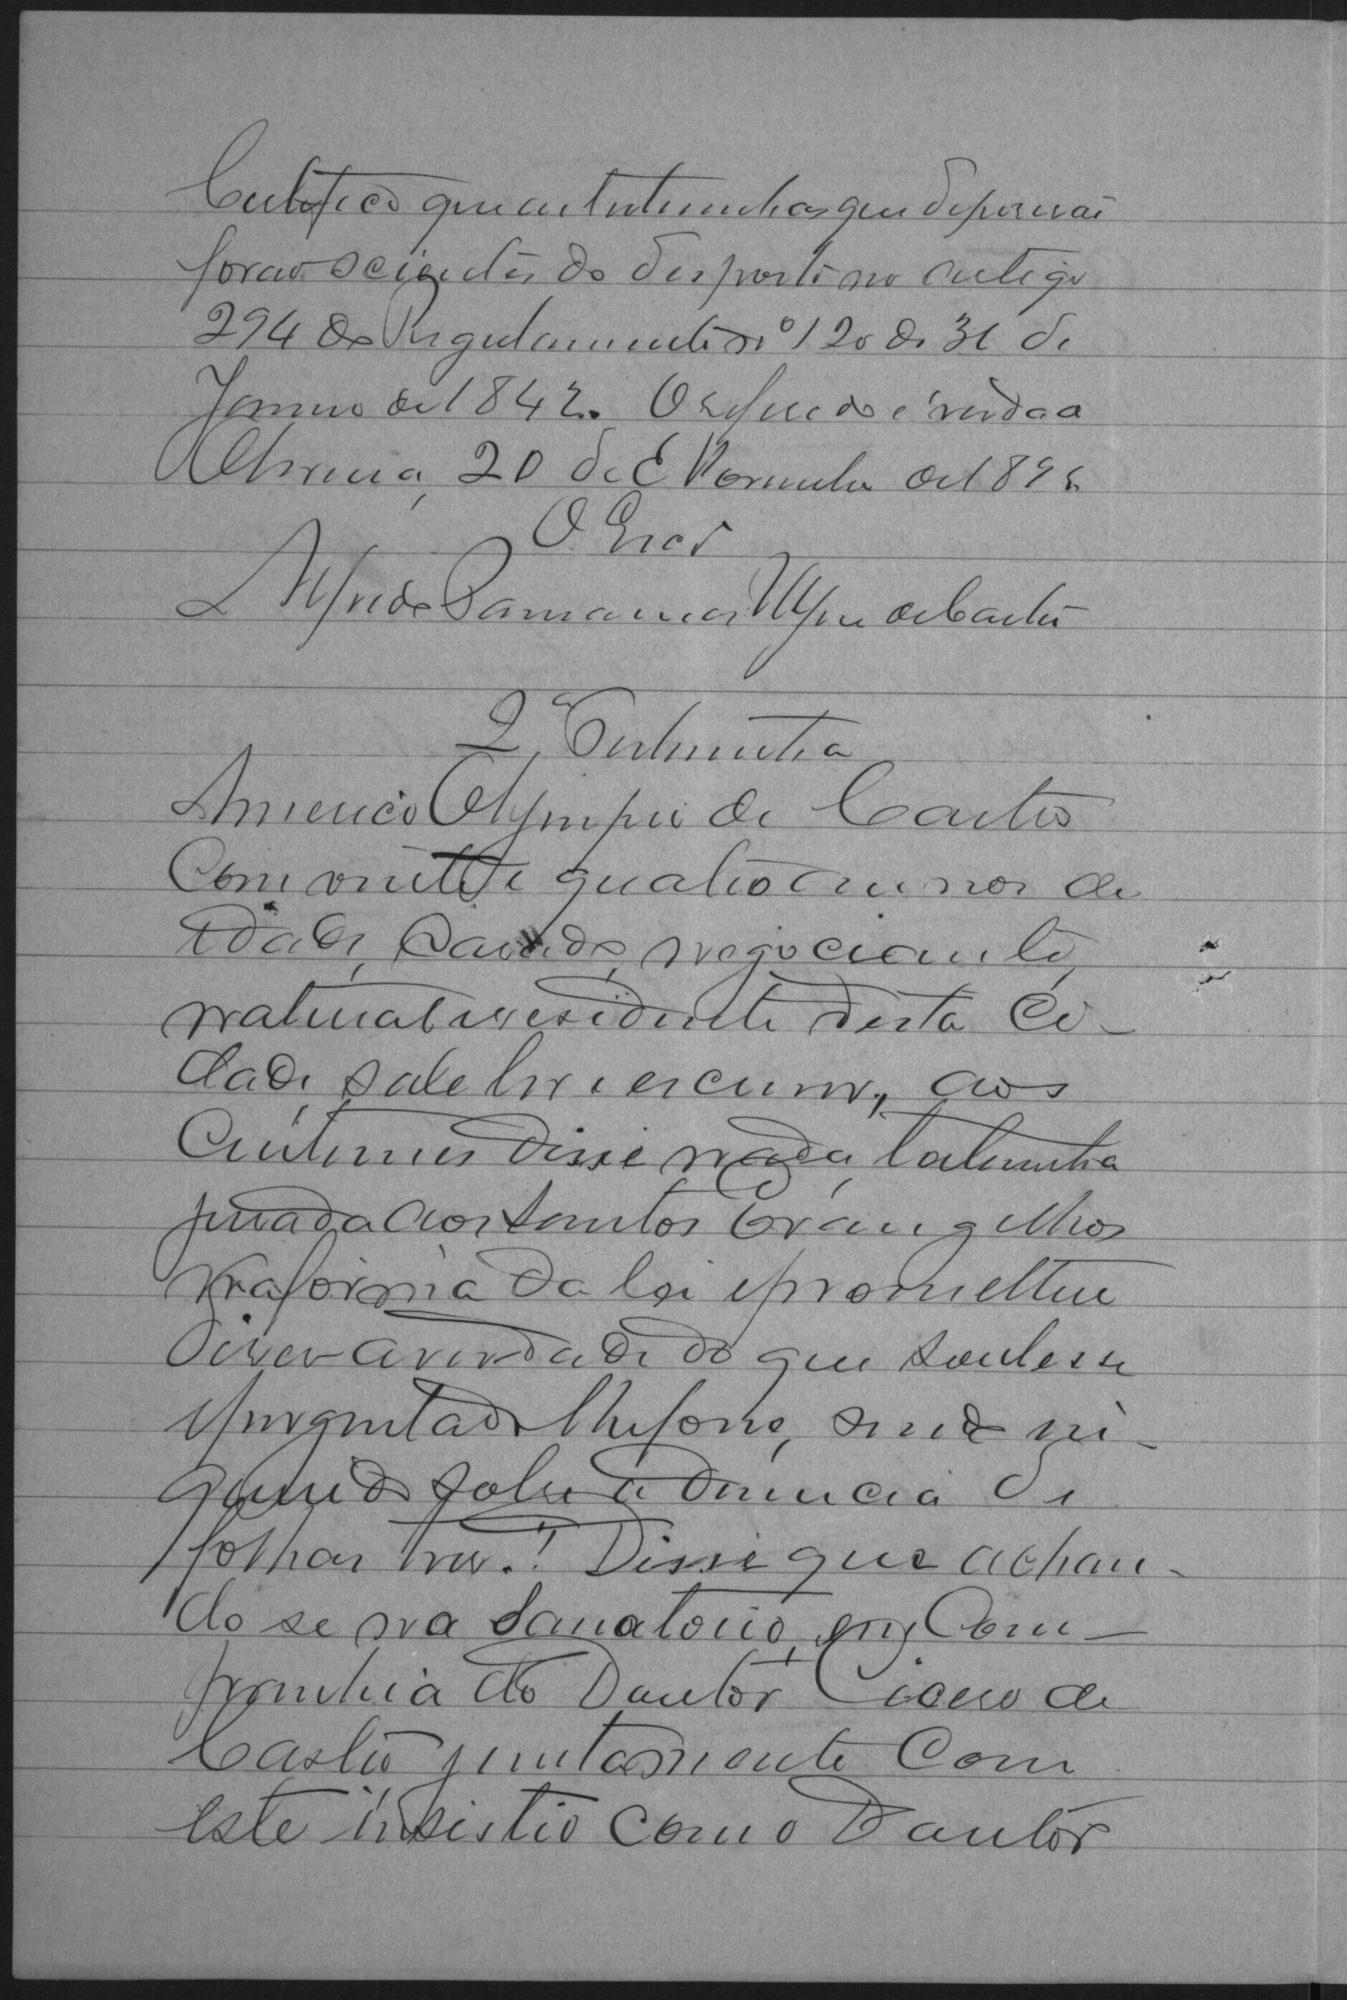 Certifico que as testemunhas que depuserão
forão scientes do desposto no artigo
294 do Regulamento nº 120 de 31 de
Janeiro de 1842. O referido é verdade
20 de Novembro de 189
O Escr
Alfredo de Castro
2ª Testemunha
Americo Olympio de Castro
Com vinte e quatro annos de
idade, casado, negociante,
natural e residente desta Ci-
dade, sabe ler e escrever, aos
Custumes disse nada, testemunha
jurada aos Santos Evangelhos
na forma da lei e prometteu
diser a verdade do que soubesse
e perguntado lhe fosse, sendo in-
querido sobre a denuncia de
folhas tres.! Disse que achan-
do se na Sanatorio, em Com-
panhia do Doutor Cicero de
Castro juntamente com
este insistio com o Doutor